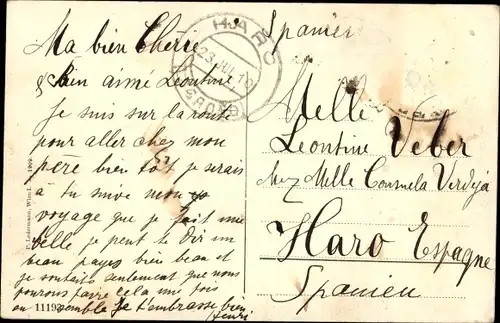 Spanien
Ma bien Chérie
& bien aimé Leontine
je suis sur la route
pour aller chez mon
père bien tôt je serais
à tu suive mon
voyage que je fait une
belle je peut te dir un
beau payes bien beau et
je voudrais seulement que nous
pourons faire cela une fois
ensemble Je t'embrasse bien
Henri
HARO
23 JUL 10
Melle
Leontine Veber
chez Melle Consuela Verdeja
Haro Espagne
Spanien
P. Ledermann, Wien I. 1909.
11193